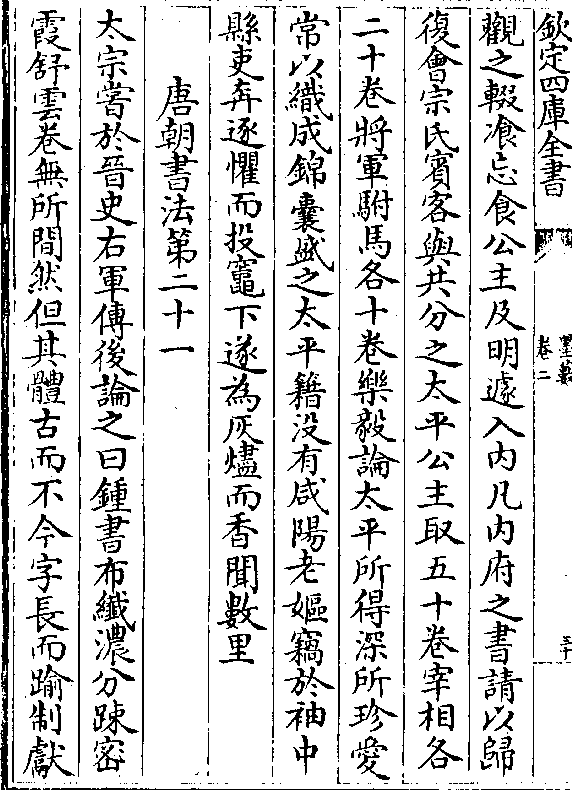 欽定四庫全書
墨藪
卷二
三十
觀之輟飡忘食公主及明遽入内凡内府之書請以歸
復會宗氏賓客與共分之太平公主取五十卷宰相各
二十卷將軍駙馬各十卷樂毅論太平所得深所珍愛
常以織成錦囊盛之太平籍没有咸陽老嫗竊於袖中
縣吏奔逐懼而投竈下遂為灰燼而香聞數里
唐朝書法第二十一
太宗嘗於晉史右軍傳後論之曰鍾書布纎濃分踈密
霞舒雲卷無所間然但其體古而不今字長而踰制獻